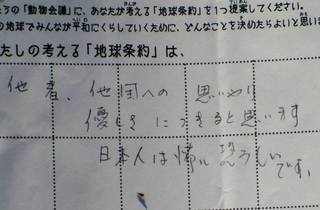 ちの「動物会議」に、あなたが考える「地球条約」を1つ提案してください。
の地球でみんなが平和にくらしていくために、どんなことを決めたらよいと思いま
たしの考える「地球条約」は、
他者、他国への 思いやり
優しさ に つきると思います
日本人は怖い 恐ろしい
です。